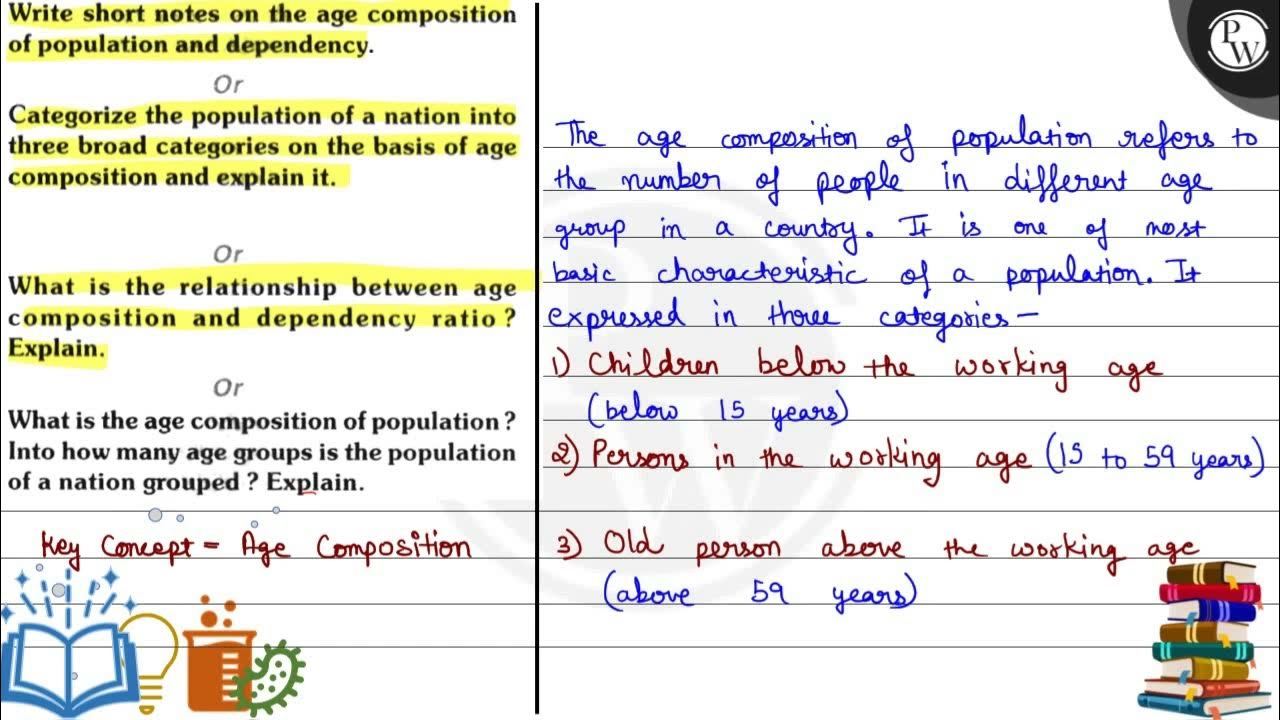 Write short notes on the age composition
of population and dependency.
Or
Categorize the population of a nation into
three broad categories on the basis of age
composition and explain it.
Or
What is the relationship between age
composition and dependency ratio ?
Explain.
Or
What is the age composition of population ?
Into how many age groups is the population
of a nation grouped ? Explain.
Key Concept = Age Composition
PW
The age composition of population refers to
the number of people in different age
group in a country. It is one of most
basic characteristic of a population. It
expressed in three categories –
1) Children below the working age
(below 15 years)
2) Persons in the working age (15 to 59 years)
3) Old person above the working age
(above 59 years)